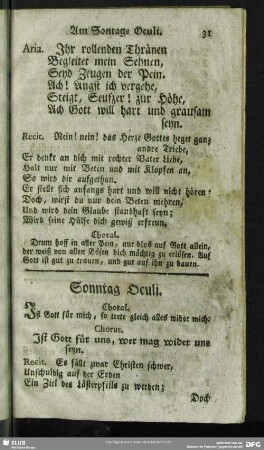 Am Sontage Oculi. 31
Aria. Ihr rollenden Thränen
Begleitet mein Sehnen,
Seyd Zeugen der Pein.
Ach! Angst ich vergehe,
Steigt, Seufzer! zur Höhe,
Ach Gott will hart und grausam
seyn.
Recit. Nein! nein! das Herze Gottes heget ganz
andre Triebe,
Er denkt an dich mit rechter Vater Liebe,
Halt nur mit Beten und mit Klopfen an,
So wird dir aufgethan.
Er stellt sich anfangs hart und will nicht hören:
Doch, wirst du nur dein Beten mehren,
Und wird dein Glaube standhaft seyn;
Wird seine Hülfe dich gewiß erfreun,
Choral.
Drum hoff in aller Pein, nur blos auf Gott allein,
der weiß von allen Bösen dich mächtig zu erlösen. Auf
Gott ist gut zu trauen, und gut auf ihn zu bauen.
Sonntag Oculi.
Choral.
Ist Gott für mich, so trete gleich alles wider mich:
Chorus.
Ist Gott für uns, wer mag wider uns
seyn.
Recit. Es fällt zwar Christen schwer,
Unschuldig auf der Erden
Ein Ziel des Lästerpfeils zu werden;
Doch
SLUB